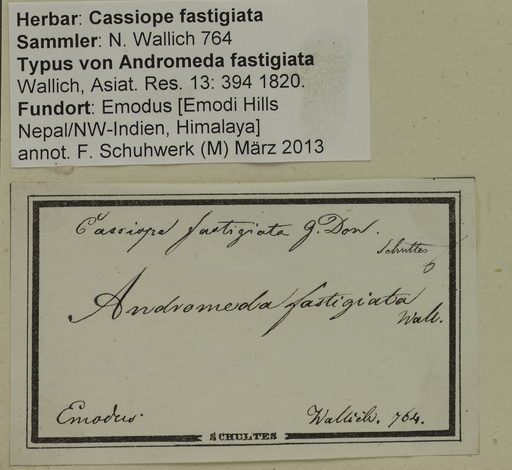 Herbar: Cassiope fastigiata
Sammler: N. Wallich 764
Typus von Andromeda fastigiata
Wallich, Asiat. Res. 13: 394 1820.
Fundort: Emodus [Emodi Hills
Nepal/NW-Indien, Himalaya]
annot. F. Schuhwerk (M) März 2013
Cassiope fastigiata G. Don.
Schultes
Andromeda fastigiata
Wall.
Emodus. Wallich. 764.
SCHULTES